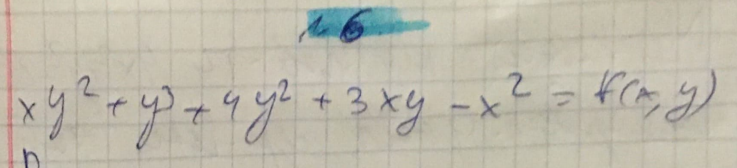 № 6
xy² + y³ + 4y² + 3xy - x² = f(x, y)